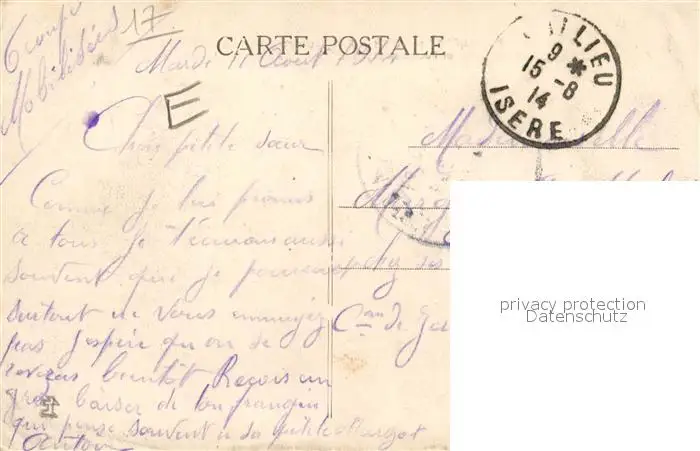 Troupes
Mobilisées
17
CARTE POSTALE
Mardi 11 Août 1914
E
ILIEU
9 *
15 -8
14
ISERE
Chère petite sœur
Mademoiselle
Comme je l'ai promis
Marg
a tous je t'écrirai aussi
souvent que je pourrai
chez ses
surtout ne vous ennuyez
Cne de
pas j'espère qu'on se
reverra bientôt Reçois un
gros baiser de ton frangin
qui pense souvent a sa petite Margot
Antoin
privacy protection
Datenschutz